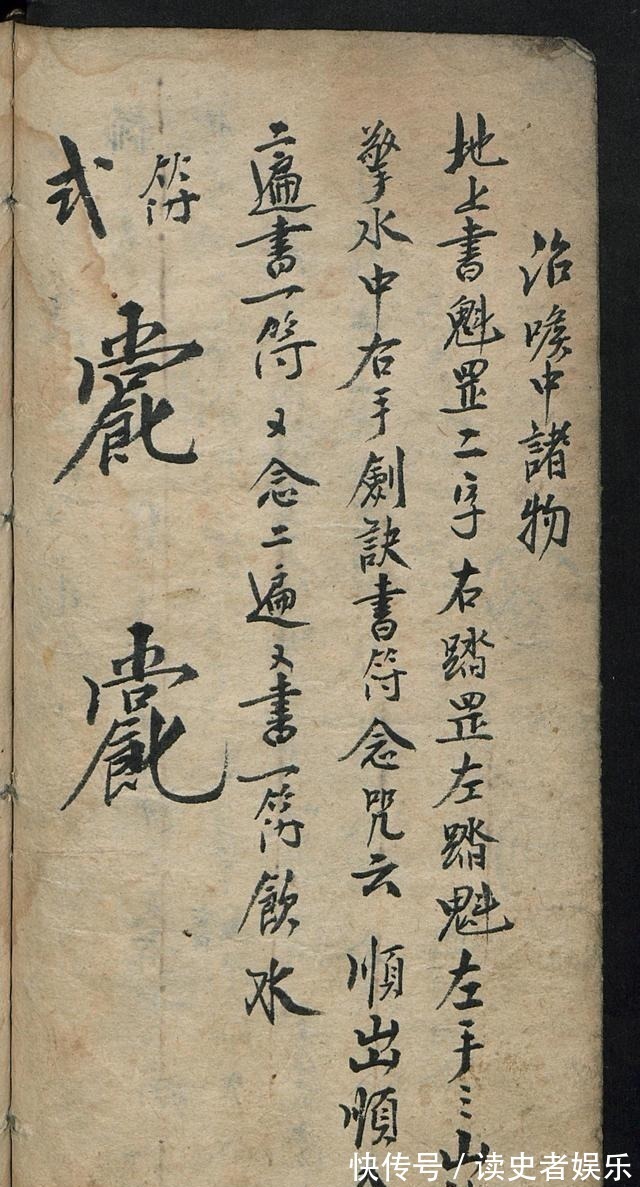 治喉中諸物
地上書魁罡二字右踏罡左踏魁左手三山
擎水中右手劍訣書符念咒云 順出順
二遍書一符又念二遍又書一符飲水
符
式
快传号/读史者娱乐